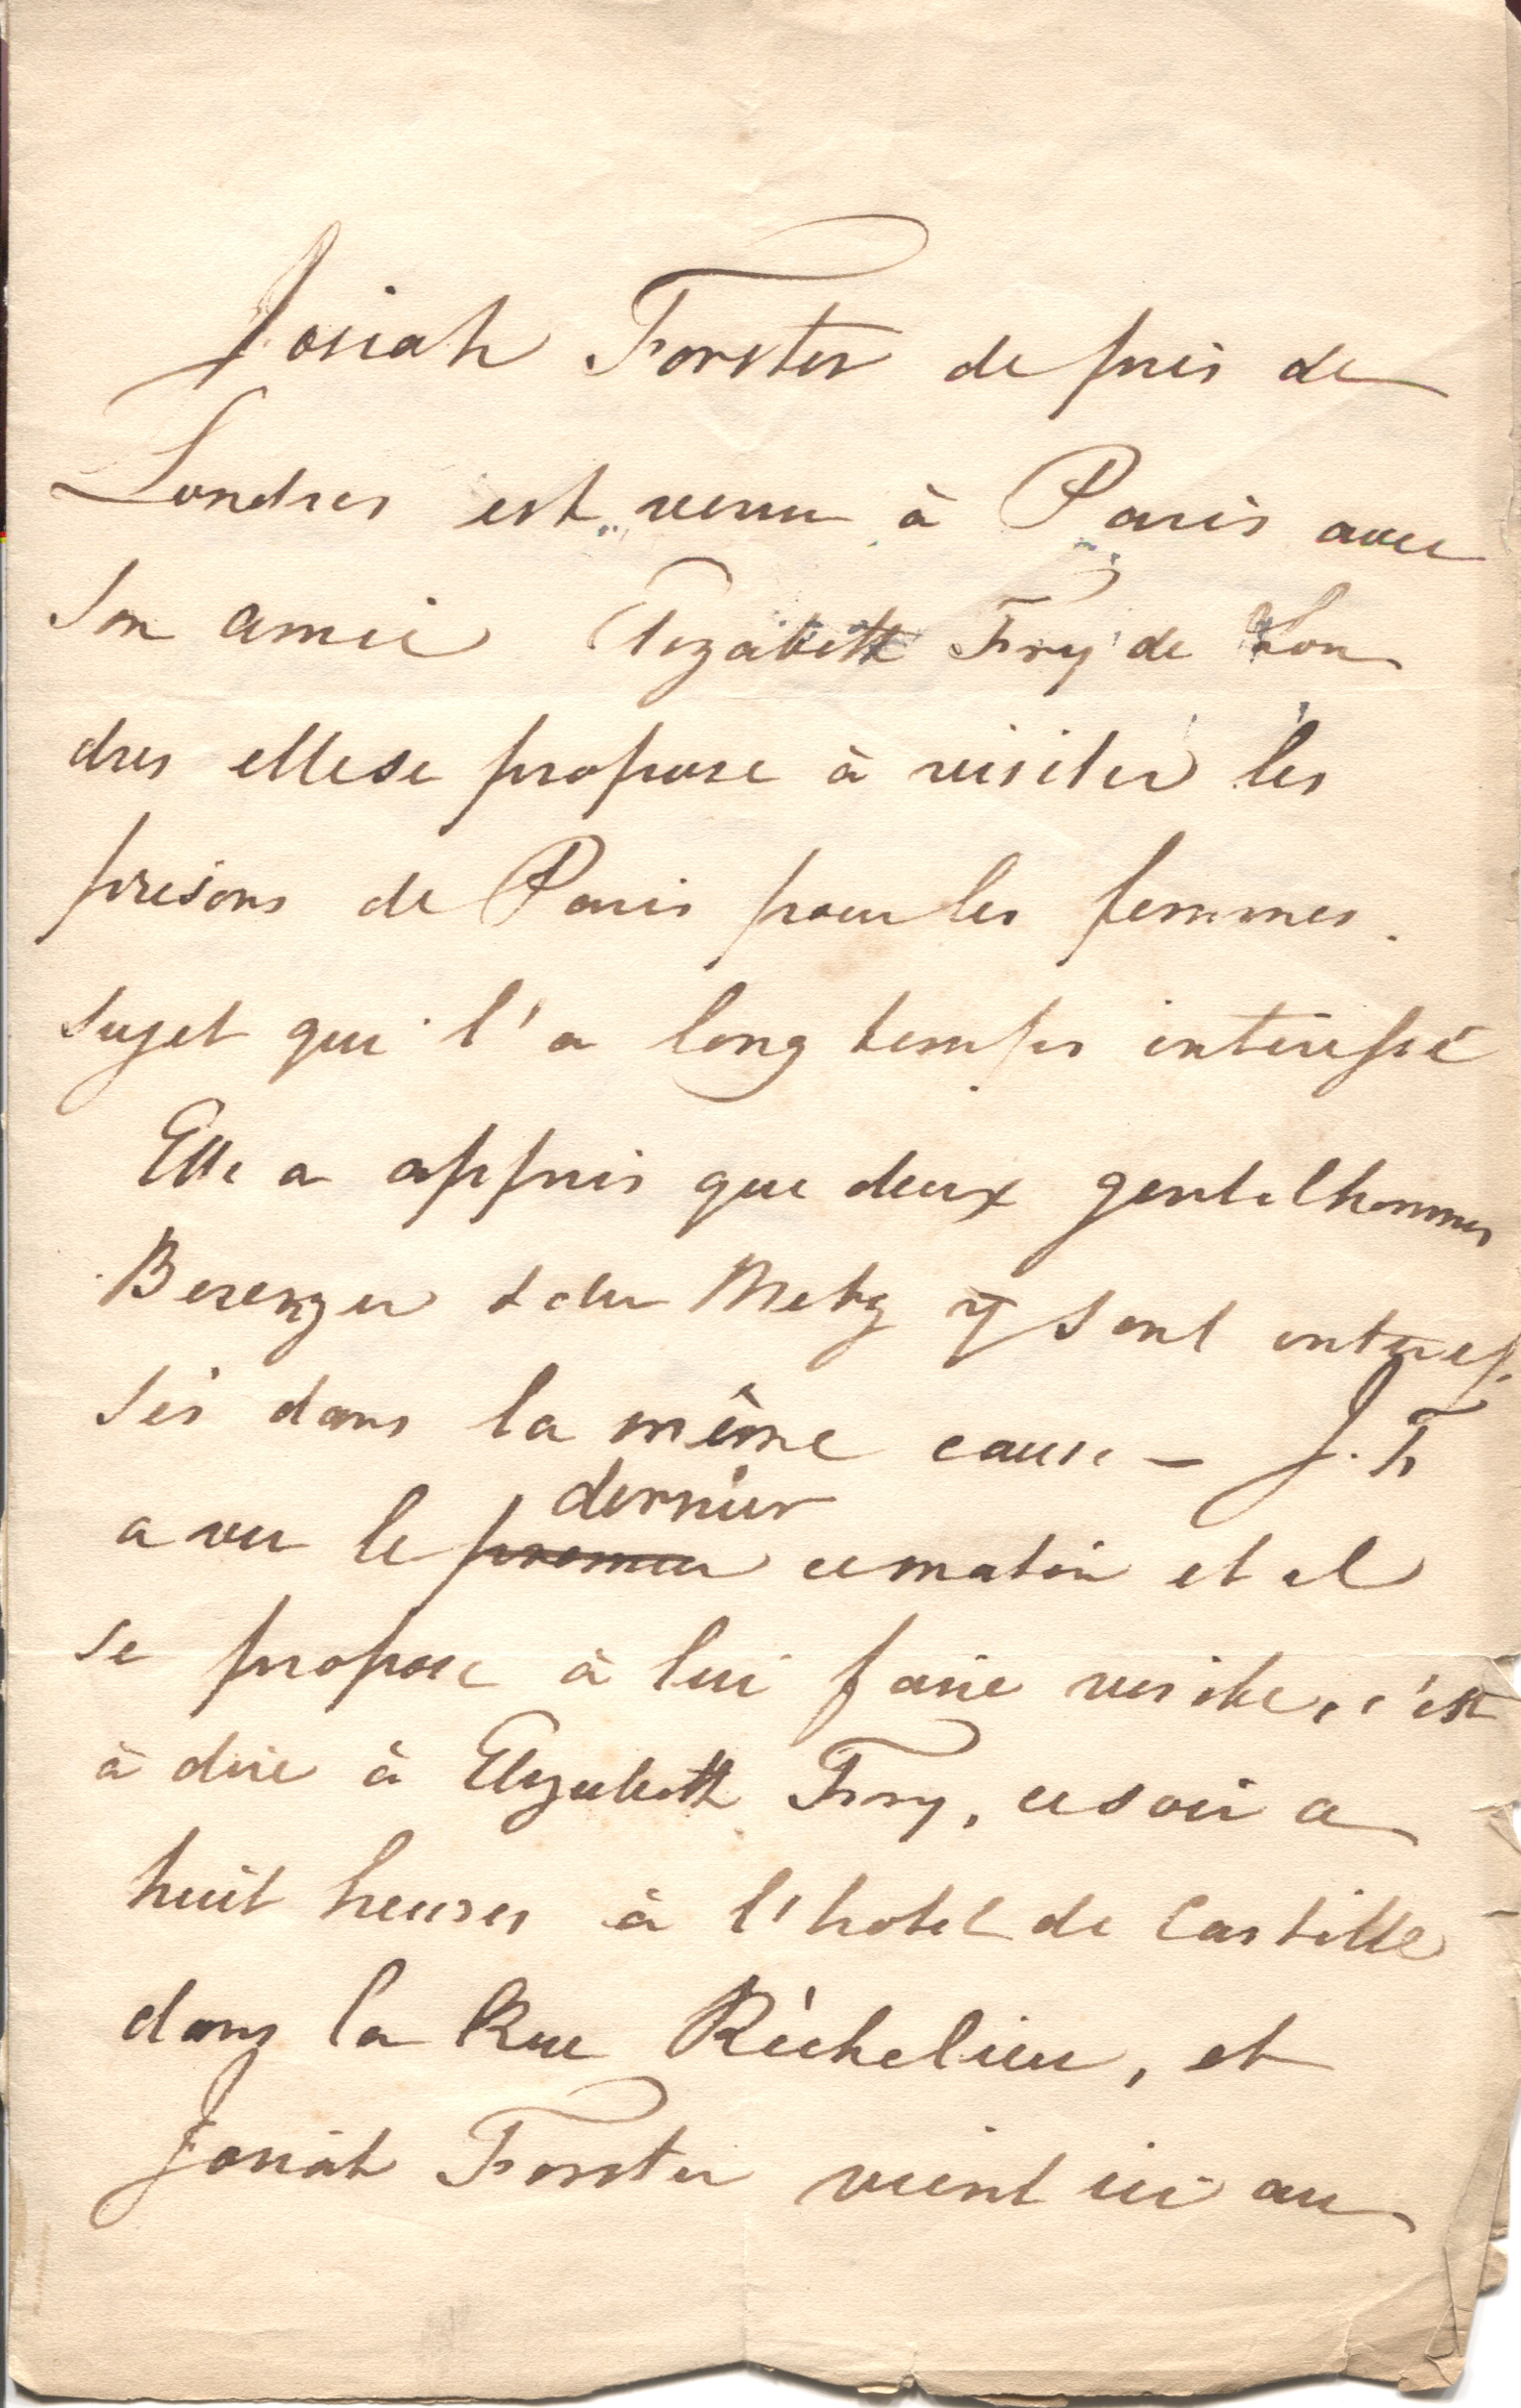 Josiah Forster de près de
Londres est venu à Paris avec
son amie Elizabeth Fry de Lon
dres elle se propose à visiter les
prisons de Paris pour les femmes.
sujet qui l'a long temps interessé
Elle a appris que deux gentelhommes
Berenger & du Metz y sont interes
sés dans la même cause – J. F
dernier
a vu le premier ce matin et il
se propose à lui faire visite, c'est
à dire à Elizabeth Fry, ce soir a
huit heures à l'hotel de Castille
dans la Rue Richelieu, et
Josiah Forster vient ici au